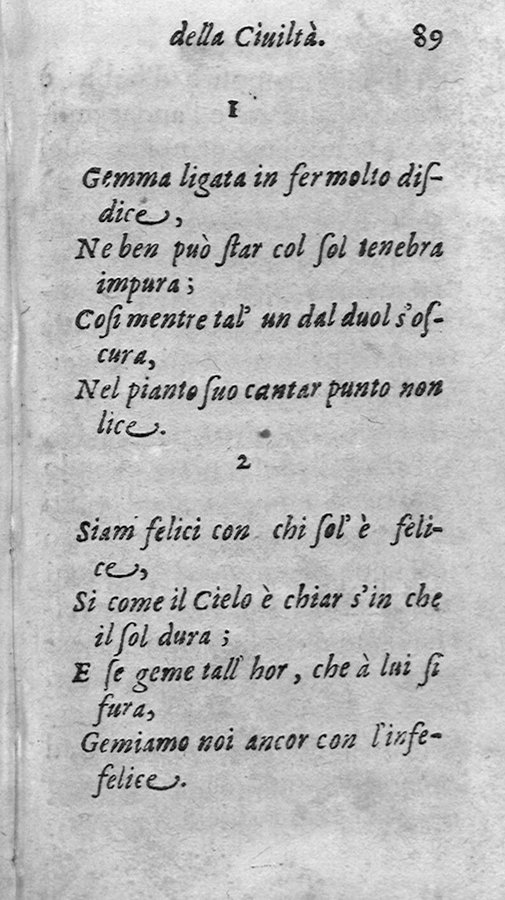 della Ciuiltà. 89
1
Gemma ligata in fer molto diſ-
dice,
Ne ben può ſtar col ſol tenebra
impura;
Coſi mentre tal' un dal duol s'oſ-
cura,
Nel pianto ſuo cantar punto non
lice.
2
Siam felici con chi ſol' è feli-
ce,
Si come il Cielo è chiar s'in che
il ſol dura;
E ſe geme tall' hor, che à lui ſi
fura,
Gemiamo noi ancor con l'infe-
felice.